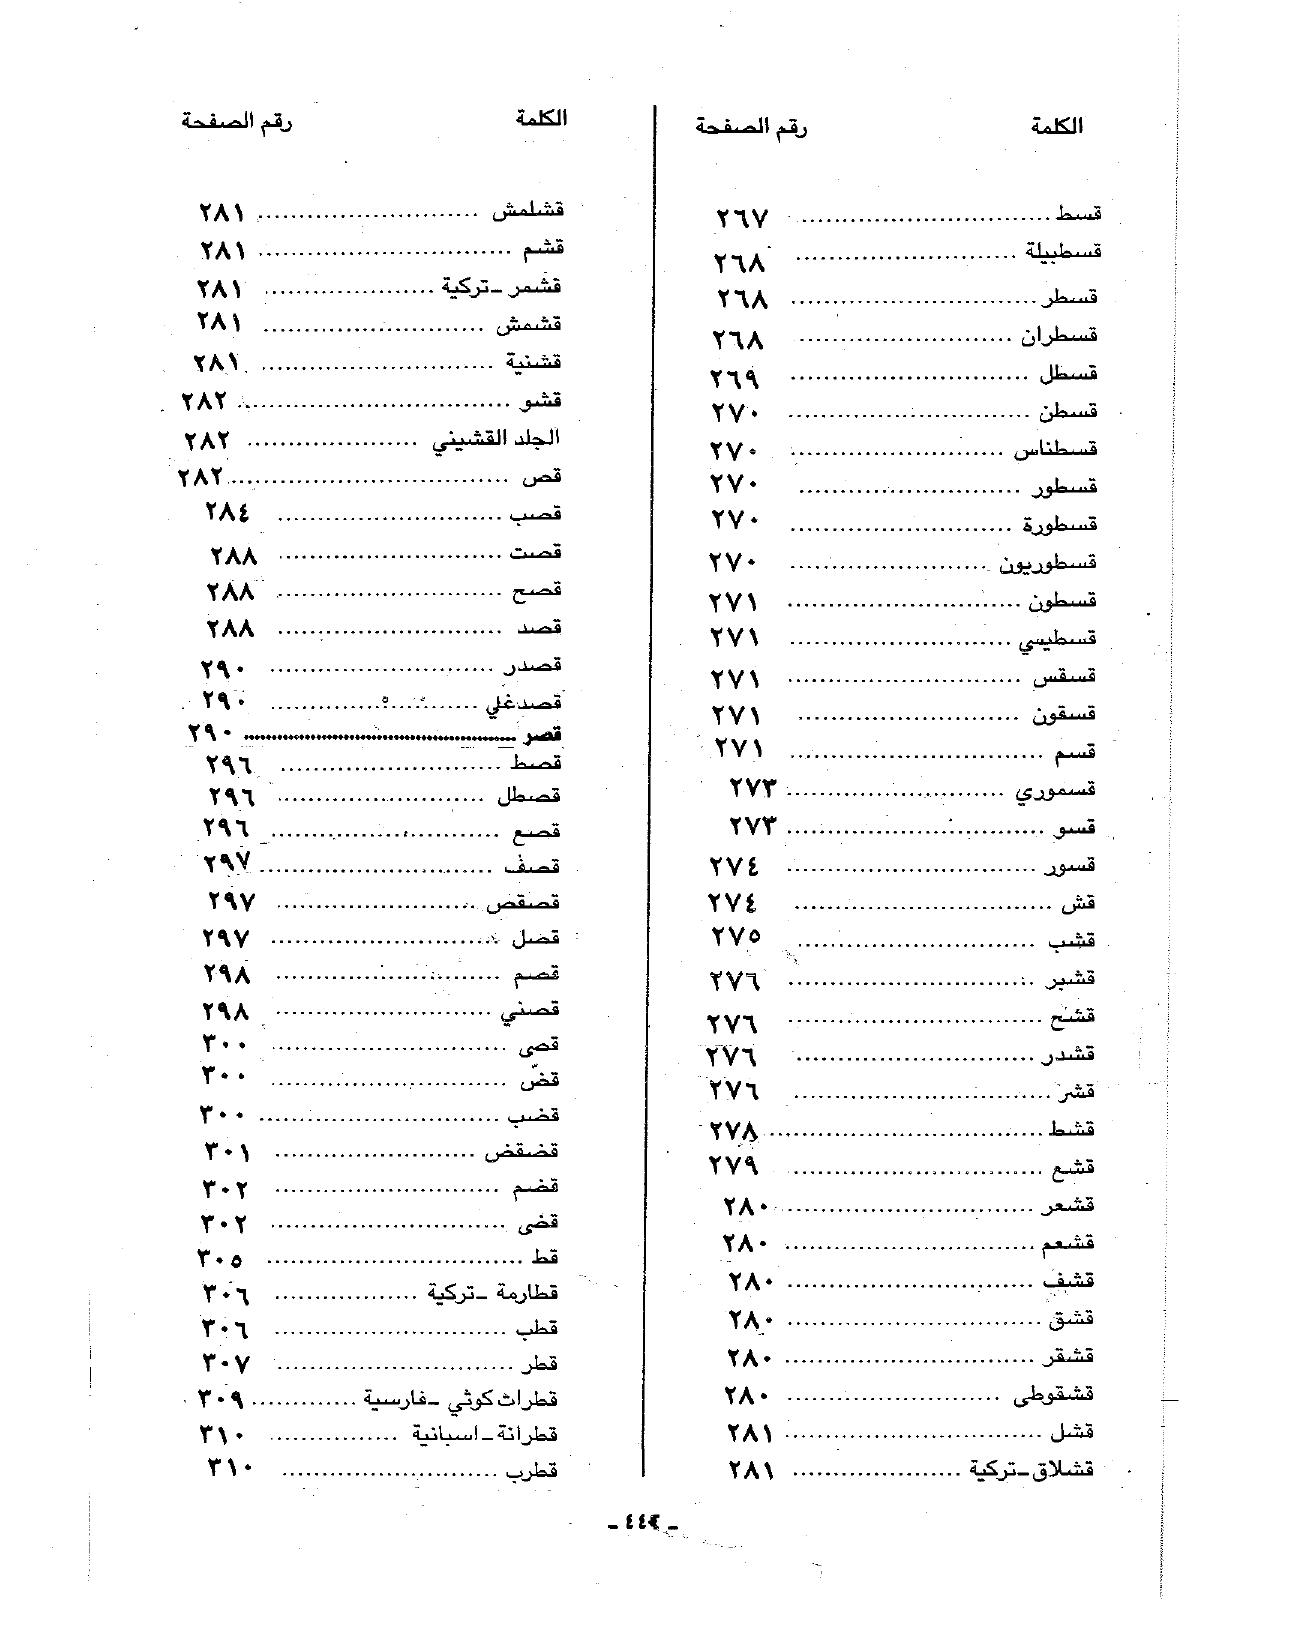 الكلمة رقم الصفحة
قسط ٢٦٧
قسطبيلة ٢٦٨
قسطر ٢٦٨
قسطران ٢٦٨
قسطل ٢٦٩
قسطن ٢٧٠
قسطناس ٢٧٠
قسطور ٢٧٠
قسطورة ٢٧٠
قسطوريون ٢٧٠
قسطون ٢٧١
قسطيسي ٢٧١
قسقس ٢٧١
قسقون ٢٧١
قسم ٢٧١
قسموري ٢٧٣
قسو ٢٧٣
قسور ٢٧٤
قش ٢٧٤
قشب ٢٧٥
قشبر ٢٧٦
قشح ٢٧٦
قشدر ٢٧٦
قشر ٢٧٦
قشط ٢٧٨
قشع ٢٧٩
قشعر ٢٨٠
قشعم ٢٨٠
قشف ٢٨٠
قشق ٢٨٠
قشقر ٢٨٠
قشقوطى ٢٨٠
قشل ٢٨١
قشلاق ـ تركية ٢٨١
الكلمة رقم الصفحة
قشلمش ٢٨١
قشم ٢٨١
قشمر ـ تركية ٢٨١
قشمش ٢٨١
قشنية ٢٨١
قشو ٢٨٢
الجلد القشيني ٢٨٢
قص ٢٨٢
قصب ٢٨٤
قصت ٢٨٨
قصح ٢٨٨
قصد ٢٨٨
قصدر ٢٩٠
قصدغلي ٢٩٠
قصر ٢٩٠
قصط ٢٩٦
قصطل ٢٩٦
قصع ٢٩٦
قصف ٢٩٧
قصقص ٢٩٧
قصل ٢٩٧
قصم ٢٩٨
قصني ٢٩٨
قصى ٣٠٠
قضّ ٣٠٠
قضب ٣٠٠
قضقض ٣٠١
قضم ٣٠٢
قضى ٣٠٢
قط ٣٠٥
قطارمة ـ تركية ٣٠٦
قطب ٣٠٦
قطر ٣٠٧
قطراث كوثي ـ فارسية ٣٠٩
قطرانة ـ اسبانية ٣١٠
قطرب ٣١٠
ـ ٤٤٢ ـ